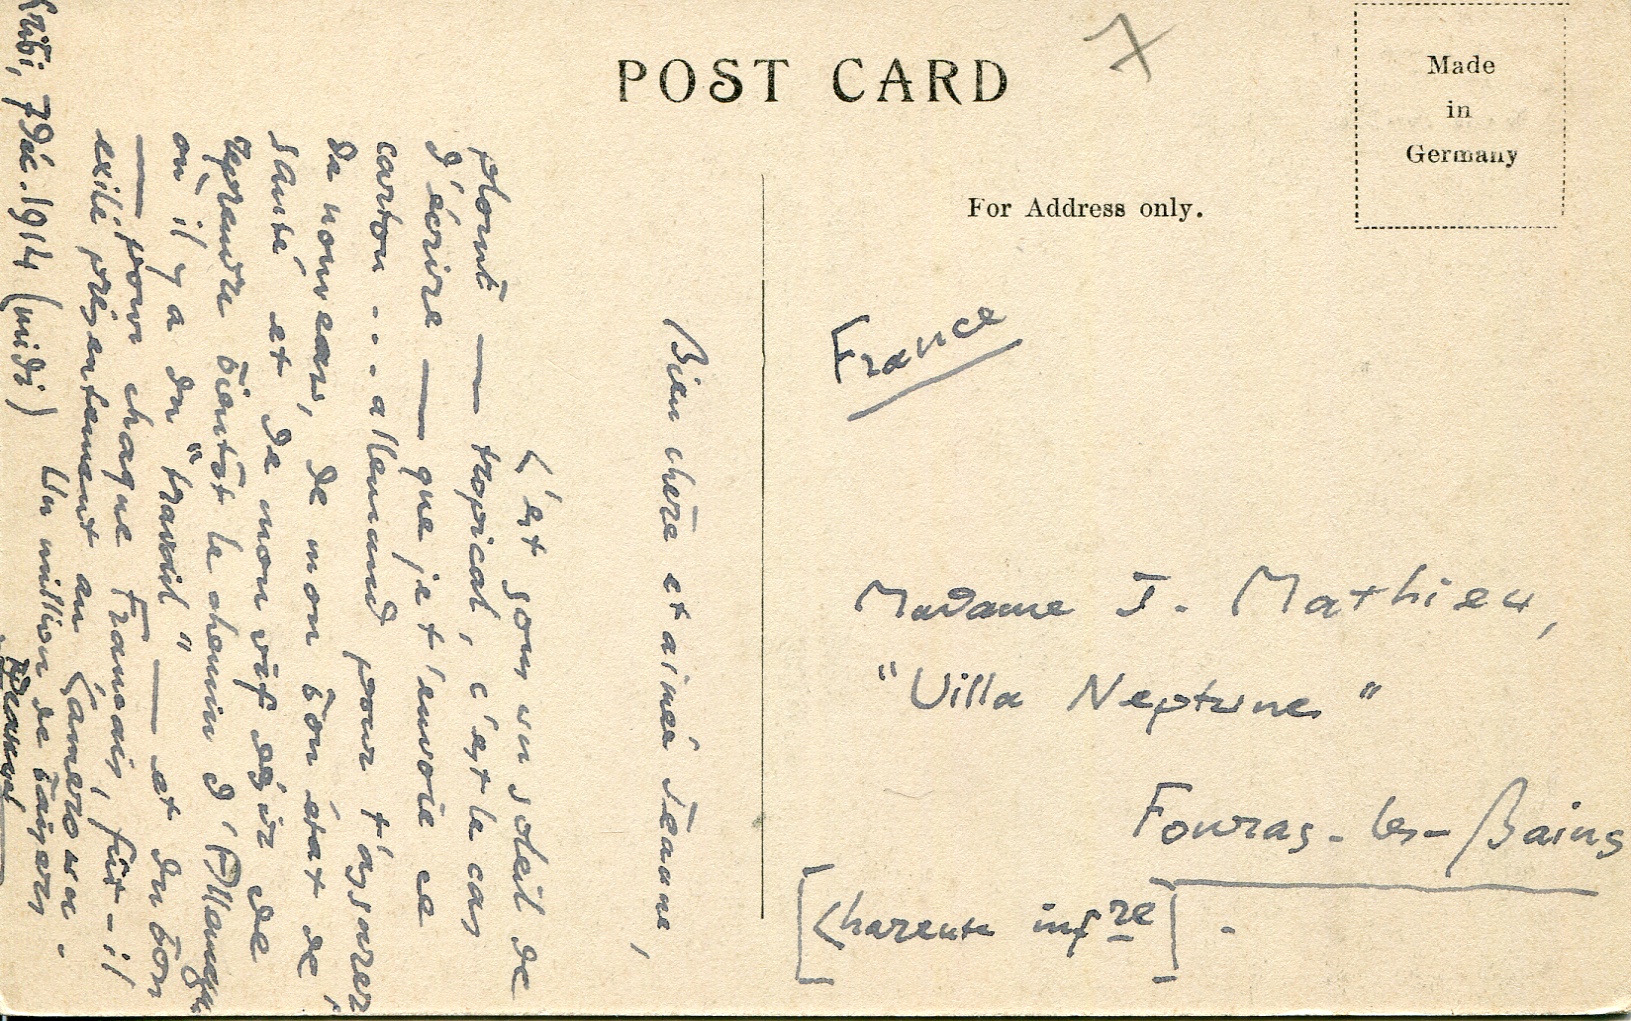 POST CARD
7
Made
in
Germany
For Address only.
France
Madame J. Mathieu,
"Villa Neptune"
Fouras-les-Bains
[Charente infre].
Kribi, 7 Déc. 1914 (midi)
Bien chère et aimée Jeanne,
C'est sous un soleil de
plomb — tropical, c'est le cas
d'écrire — que je t'envoie ce
carton... allemand pour t'assurer,
de nouveau, de mon bon état de
santé et de mon vif désir de
reprendre bientôt le chemin d'Allemagne
où il y a du "travail" — et du bon
— pour chaque Français, fût-il
exilé présentement au Cameroun.
Un million de baisers